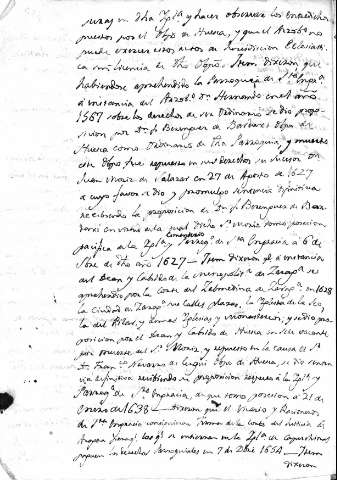 en dha Ygl.ª y hacer observar los entredichos
puestos por el Obpo de Huesca, y que el Arzob.º no
puede exercer estos actos de Jurisdicion Eclesiasti
ca sin licencia de dho Obpo. Item dixeron que
habiendose aprehendido la Parroquia de S.ta Engra.ª
á instancia del Arzob.º D.n Hernando en el año
1567 sobre los derechos de ser Ordinario se dio propo
sicion, por D.n Berenguer de Bardaxi Obpo de
Huesca como Ordinario de dha Parroquia, y muerto
este Obpo fue repuesto en sus derechos su sucesor D.n
Juan Moriz de Salazar en 27 de Agosto de 1627
a cuyo favor se dio y promulgo sentencia difinitiva
recibiendo la proposicion de D.n Berenguer de Bar
daxi en virtud de la qual dicho S.r Moriz tomó posesion
pacifica de la Ygl.ª y Parroq.ª de S.ta Engracia á 6 de
de dho año 1627 — Item dixeron q.e á instancia
del Dean y Cabildo de la metropolit.ª de Zarag.ª se
aprehendio por la Corte del Zalmedina de Zarag.ª en 1628
la Ciudad de Zarag.ª sus calles, plazas, la Yglesia de la Seo
la del Pilar, y demas Yglesias y monasterios, y se dio pro
posicion por el Dean y Cabildo de Huesca en Sede vacante
por muerte del S.r Moriz y repuesto en la causa el S.r
D.n Fran.co Navarro de Eugui Obpo de Huesca, se dio senten
cia difinitiva recibiendo su proposicion respecto á la Ygl.ª y
Parroq.ª de S.ta Engracia, de que tomo posesion á 21 de
Enero de 1638 — dixeron que el Vicario y Racioneros
de S.ta Engracia firma de la Corte del Justicia de
Aragon se entierran en la Ygl.ª de Capuchinos
paguen los derechos Parroquiales en 7 de 1654 — Item
dixeron